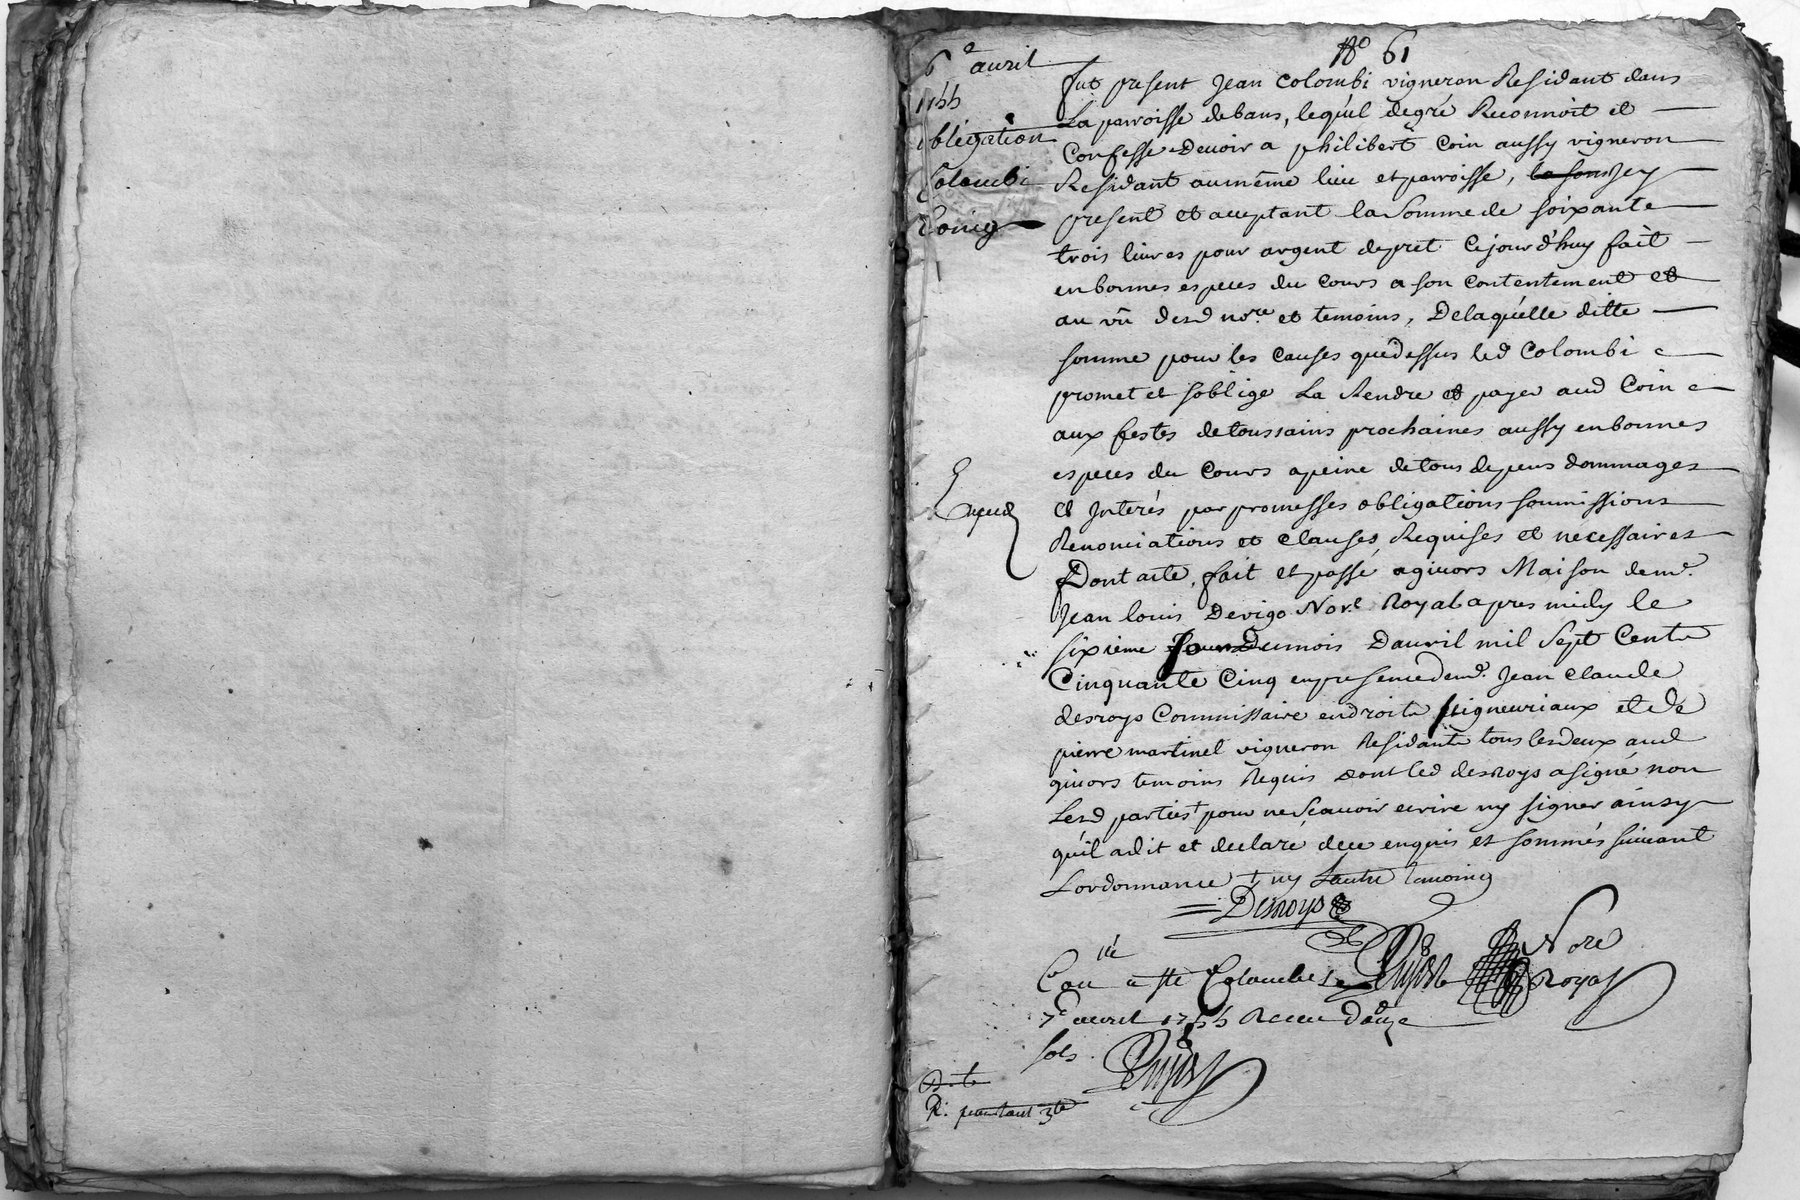 N.o 61
6e avril
1755
obligation
Colombi
Coing
fut present Jean Colombi vigneron Residant dans
La parroisse de bans, lequ'el de gré Reconnoit et
Confesse devoir a philibert Coin aussy vigneron
Residant au même lieu et parroisse, icy
present et acceptant la Somme de soixante
trois livres pour argent de pret cejourd'huy fait
en bonnes especes du cours a son contentement et
au vû desd nore. et temoins, De laqu'elle ditte
somme pour les causes que dessus led Colombi
promet et soblige La Rendre et payer aud Coin
aux festes de toussains prochaines aussy en bonnes
especes du Cours a peine de tous depens dommages
et Interés par promesses obligations soumissions
Renonciations et clauses Requises et necessaires
Expedié
Dont acte, fait et passé a givors Maison de me.
Jean louis Devigo Nore. Royal apres midy le
sixieme Jour Du mois D'avril mil Sept Cents
Cinquante Cinq en presence de me. Jean Claude
desroys Commissaire en droits seigneuriaux et de
pierre martinel vigneron Residants tous les deux aud
givors temoins Requis dont led desroys a signé non
Lesd parties + pour ne Scavoir ecrire ny signer ainsy
qu'il a dit et declaré de ce enquis et sommés suivant
Lordonnance + ny Lautre temoing
Desroys
Nore
Royal
Con.llé a Ste Colombe Le
7e avril 1755 Receu Douze
sols